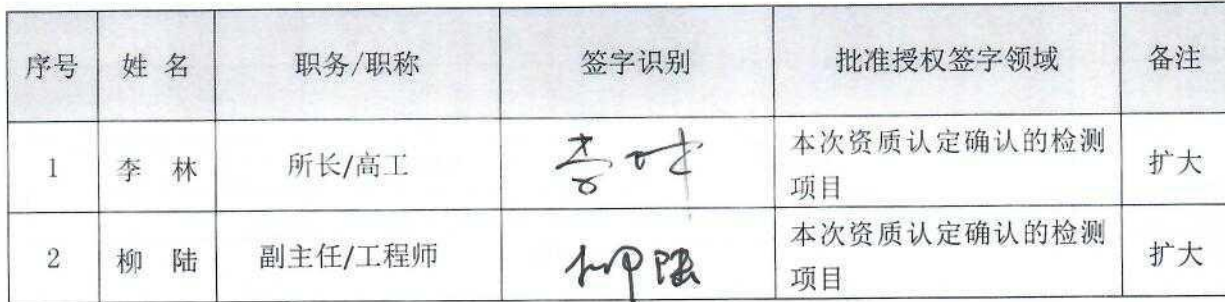 序号 姓 名 职务/职称 签字识别 批准授权签字领域 备注
1 李 林 所长/高工 李林 本次资质认定确认的检测项目 扩大
2 柳 陆 副主任/工程师 柳陆 本次资质认定确认的检测项目 扩大